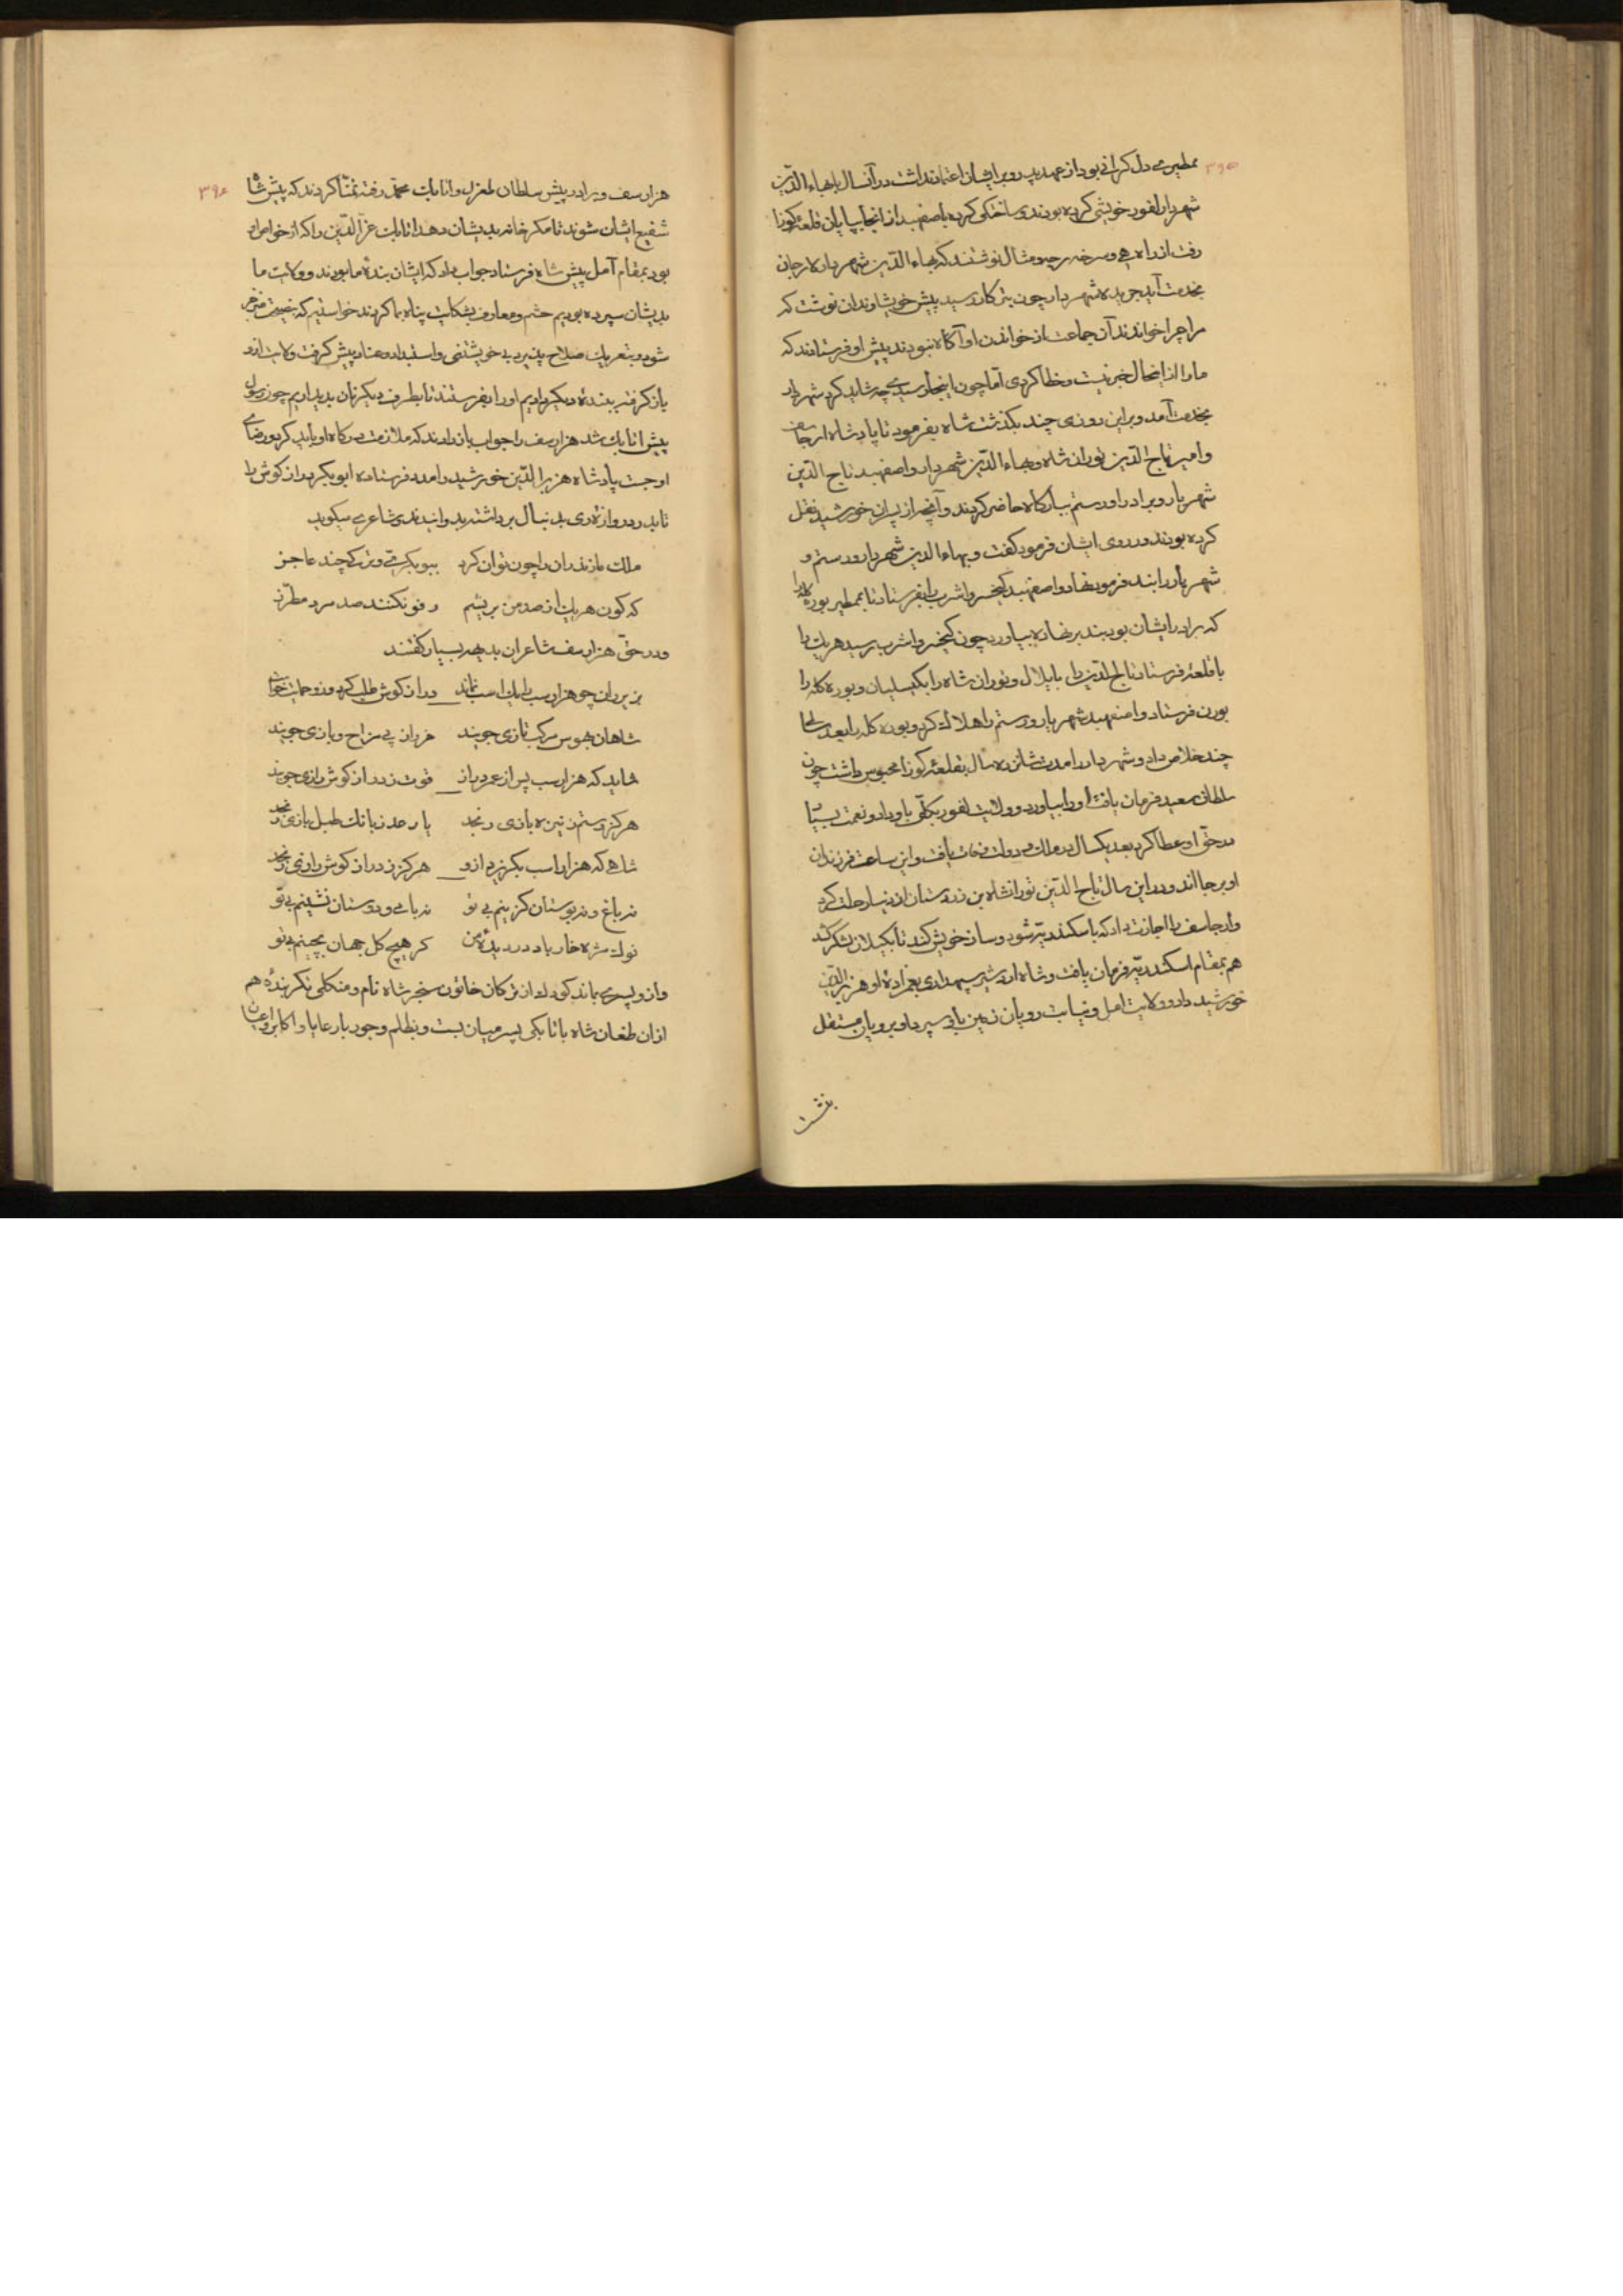 ۳۹۵
ممطیر می دل کرانی بود از عهد پدر و بر ایشان اعتماد نداشت در آنسال با بهاء الدّین
شهردار لفور خویشی کرده بودند و ساختکی کرده با صفهبد از انجا بپایان قلعهٔ کوزا
رفت از راه و مثال نوشتند که بهاء الدّین شهردار لارجان
بخدمت آید جریده شهردار چون رسید پیش خویشاوندان نوشت که
مرا چرا خواندند آن جماعت از خواندن او آکاه نبودند پیش او فرستادند که
ما را از اینحال خبر نیست و خطا کردی امّا چون اینجا رسیدی چه شاید کرد شهردار
بخدمت آمد و براین روزی چند بکذشت شاه بفرمود تا پادشاه ارجاسف
و امیر تاج الدّین توران شاه و بهاء الدّین شهردار و اصفهبد تاج الدّین
شهریار و برادر او رستم ببارکاه حاضر کردند و آنچه از پسران خورشید نقل
کرده بودند در روی ایشان فرمود کفت و بهاء الدین شهردار و رستم و
شهریار را بند فرمود نهاد و اصفهبد کیخسرو اشرب را بفرستاد تا بممطیر بوره کله را
که برادر ایشان بود بند بر نهاده بیاورد چون کیخسرو اشرب رسید هر یک را
با قلعهٔ فرستاد تاج الدّین را بایلال و توران شاه را بکیسلیان و بوره کله را
بورن فرستاد و اصفهبد شهریار و رستم را هلاک کرد و بوره کله را بعد سالی
چند خلاص داد و شهردار را مدت شانزده سال بقلعهٔ کوزا محبوس داشت چون
سلطان سعید فرمان یافت او را بیاورد و ولایت لفور بکلّی باو داد و نعمت بسیار
در حقّ او عطا کرد بعد یکسال در ملک و دولت وفات یافت و این ساعت فرزندان
او بر جا اند و در این سال تاج الدّین تورانشاه بن زردستان از دنیا رحلت کرد
و ارجاسف را اجازت داد که با سکندریّه شود و ساز خویش کند تا بکیلان لشکر کشد
هم بمقام اسکندریّه فرمان یافت و شاه اردشیر سپهداری بعمزادهٔ او هزبر الدّین
خورشید داد و ولایت امل و نیابت رویان زمین باو سپرد او برویان مستقل
بنشست
۳۹۶
هزارسف و برادر پیش سلطان طغرل و اتابک محمّد رفته تمنّا کردند که پیش شاه
شفیع ایشان شوند تا مکر خانه بدیشان دهد اتابک عزّ الدّین را که از خواص او
بود بمقام آمل پیش شاه فرستاد جواب داد که ایشان بندهٔ ما بودند و ولایت ما
بدیشان سپرده بودیم حشم و معارف بشکایت پناه بما کردند خواستیم که بنصیحت منزجر
شود و بتعریک صلاح پذیرد بی خویشتنی و استبداد و عناد پیش کرفت ولایت ازو
باز کرفته ببندهٔ دیکر دادیم او را بفرستند تا بطرف دیکر نان پدید اریم چون رسول
پیش اتابک شد هزارسف را جواب باز دادند که ملازمت درکاه او باید کرد و رضای
او جست پادشاه هزبر الدّین خورشید را مدد فرستاد و ابو بکر دراز کوش را
تا بدر دروازهٔ ری بدنبال برداشته بدوانید ندی شاعری میکوید
ملک مازندران را چون توان کرد ببوبکری و ترکی چند عاجز
که کون هر یک از صد من بریشم رفو نکنند صد مرد مطرّز
و در حقّ هزارسف شاعران بدیهه بسیار کفتند
یزیردان چو هزارسب را یک اسب نماند دراز کوش طلب کرد
شاهان بهوس مرکب تازی جویند خران پی مزاح و بازی جویند
شاید که هزارسب پس از عمر دراز قوت ز دراز کوش رازی جویند
هرکز رستم ز نیزه بازی رنجد یا رعد ز بانک طبل بازی رنجد
شاهی که هزار اسب بکریزد ازو هرکز ز دراز کوش رازی رنجد
نه باغ و نه بوستان کزینم بی تو نه با می و دوستان نشینم بی تو
نوک مژه خار باد در دیدهٔ من کر هیچ کل جهان بچینم بی تو
و ازو پسری بماند کودک از ترکان خاتون سنجر شاه نام و منکلی تکز بندهٔ هم
از ان طغان شاه باتابکی پسر میان بست و بظلم و جور با رعایا و اکابر و اعیان